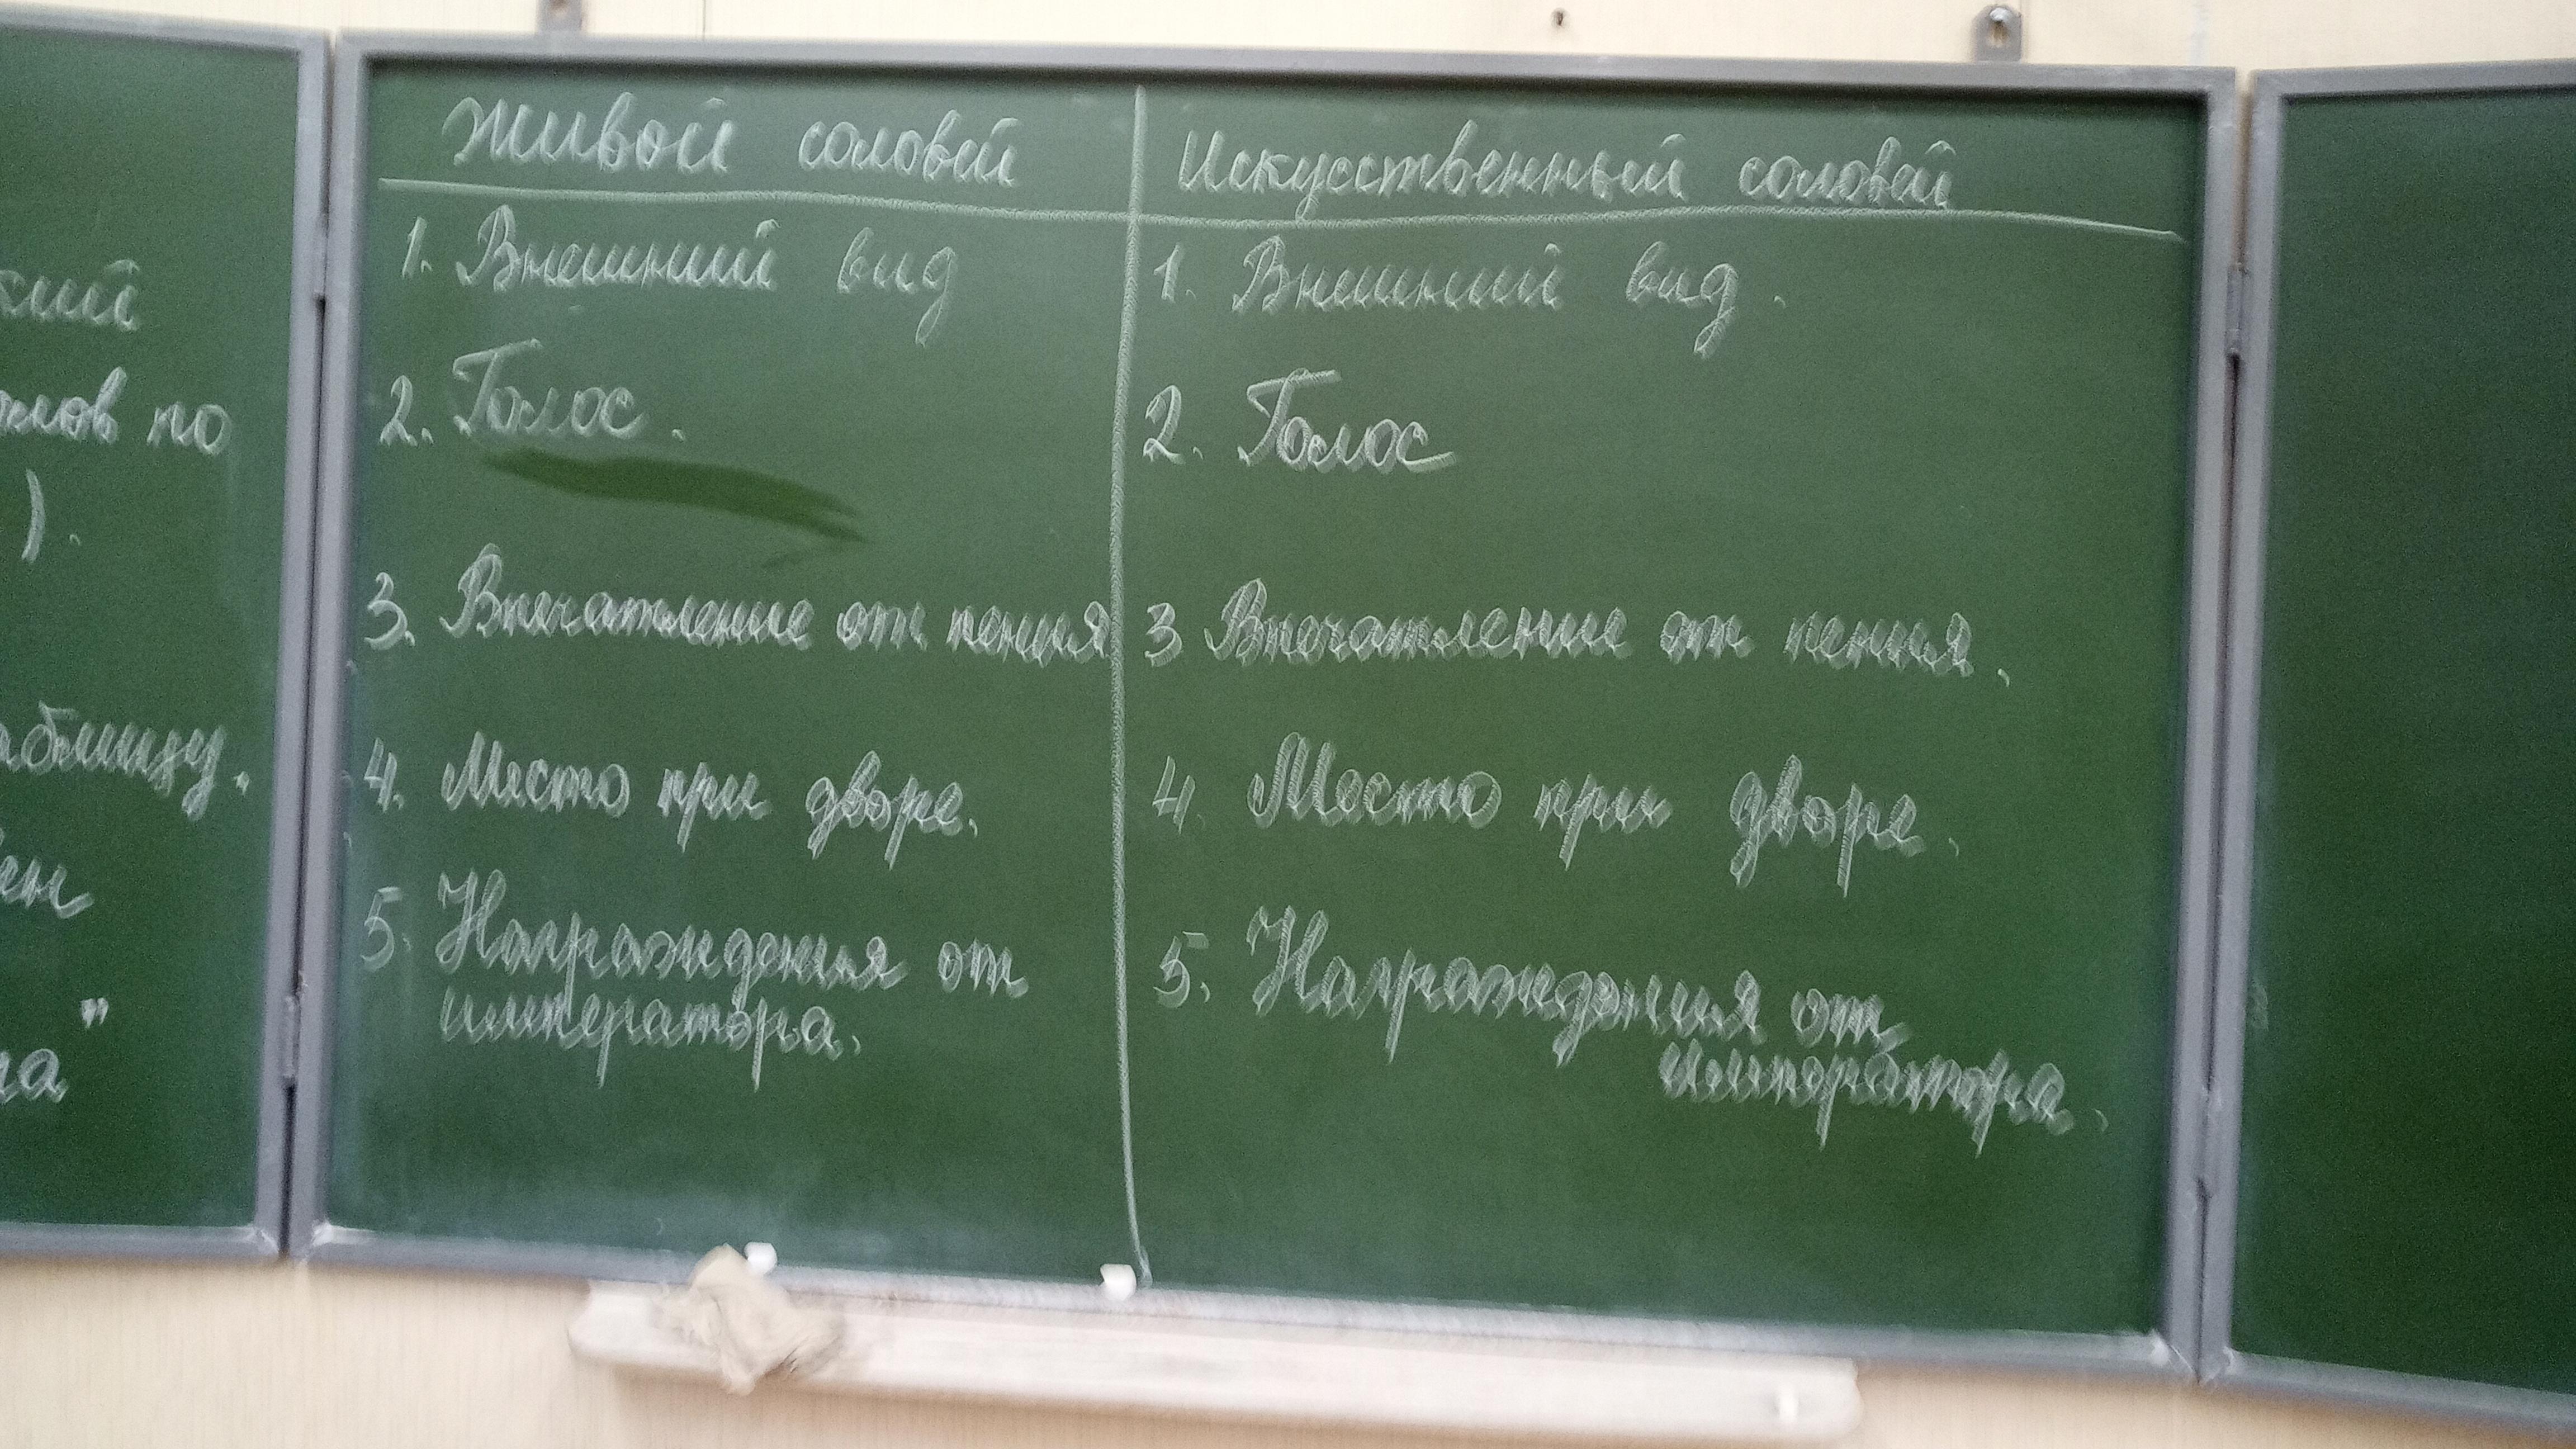 Живой соловей
1. Внешний вид
2. Голос.
3. Впечатление от пения
4. Место при дворе.
5. Награждения от
императора.
Искусственный соловей
1. Внешний вид.
2. Голос
3 Впечатление от пения.
4. Место при дворе.
5. Награждения от
императора.
кий
лов по
).
аблицу.
ен
"
га